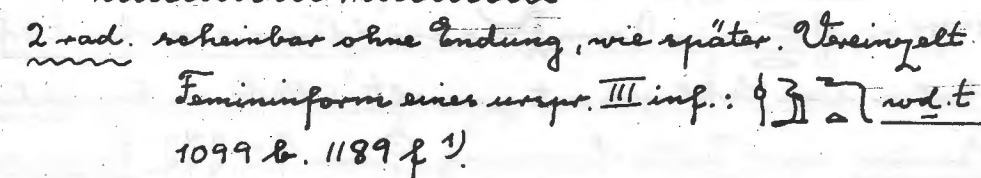 2 rad. scheinbar ohne Endung, wie später. Vereinzelt
Femininform eines urspr. III inf.: wḏ.t
1099 b. 1189 f 1)